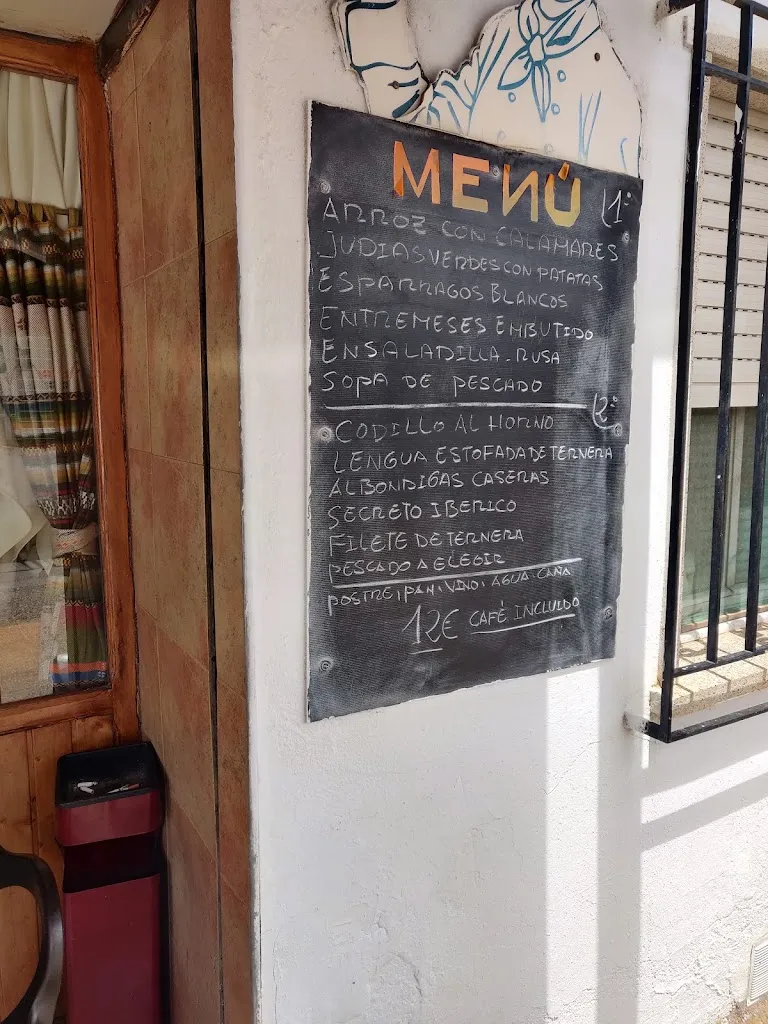 MENÚ 1º
ARROZ CON CALAMARES
JUDIAS VERDES CON PATATAS
ESPARRAGOS BLANCOS
ENTREMESES EMBUTIDO
ENSALADILLA-RUSA
SOPA DE PESCADO
2º
CODILLO AL HORNO
LENGUA ESTOFADA DE TERNERA
ALBONDIGAS CASERAS
SECRETO IBERICO
FILETE DE TERNERA
PESCADO A ELEGIR
POSTRE, PAN, VINO, AGUA, CAÑA
12€ CAFÉ INCLUIDO